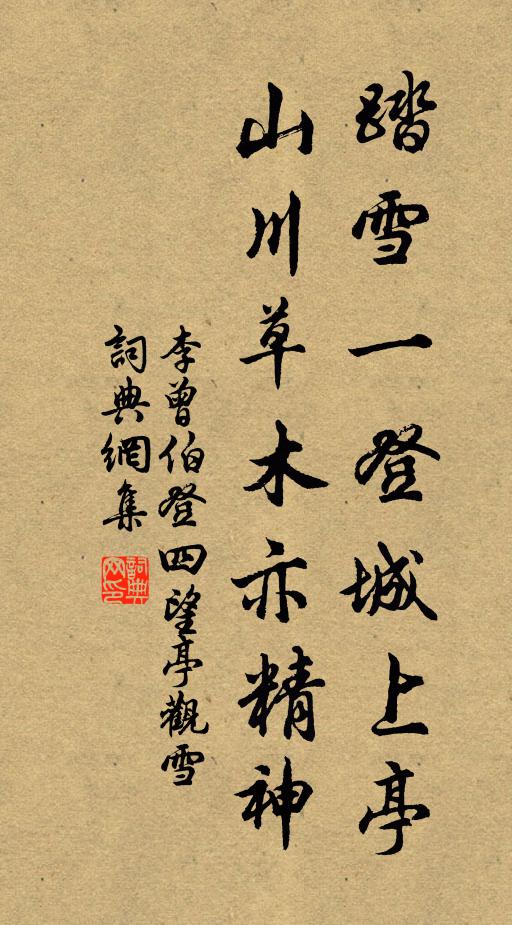 踏雪一登城上亭
山川草木亦精神
李曾伯登四望亭觀雪
詞典網集
詞典網印